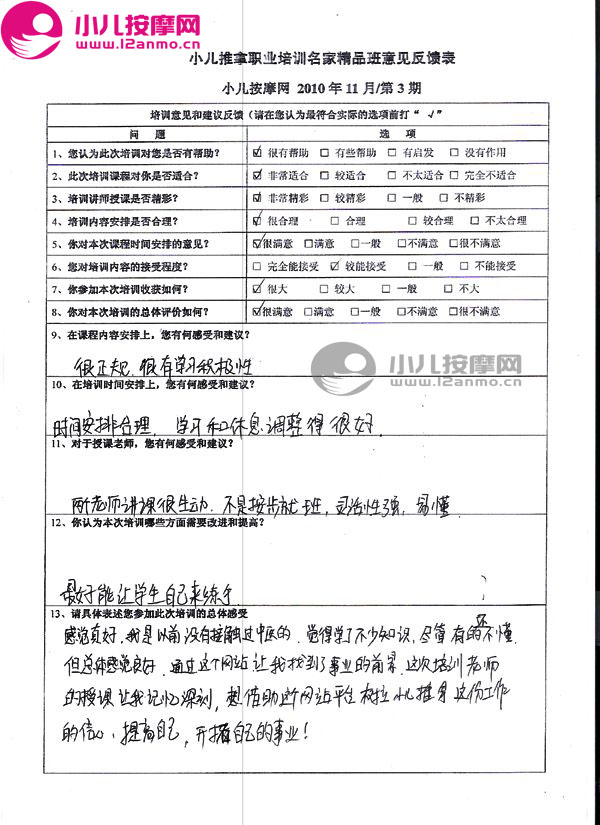 小儿按摩网
www.12anmo.cn
小儿推拿职业培训名家精品班意见反馈表
小儿按摩网 2010 年 11 月/第 3 期
培训意见和建议反馈（请在您认为最符合实际的选项前打“ √ ”
问 题 选 项
1、您认为此次培训对您是否有帮助？ ☑ 很有帮助 □ 有些帮助 □ 有启发 □ 没有作用
2、此次培训课程对你是否适合？ ☑ 非常适合 □ 较适合 □ 不太适合 □ 完全不适合
3、培训讲师授课是否精彩？ ☑ 非常精彩 □ 较精彩 □ 一般 □ 不精彩
4、培训内容安排是否合理？ ☑ 很合理 □ 合理 □ 较合理 □ 不太合理
5、你对本次课程时间安排的意见？ ☑很满意 □满意 □一般 □不满意 □很不满意
6、您对培训内容的接受程度？ □ 完全能接受 ☑ 较能接受 □ 一般 □ 不能接受
7、你参加本次培训收获如何？ ☑ 很大 □ 较大 □ 一般 □ 不大
8、你对本次培训的总体评价如何？ ☑很满意 □满意 □一般 □不满意 □很不满意
9、在课程内容安排上，您有何感受和建议？
很正规，很有学习积极性
小儿按摩网
www.12anmo.cn
10、在培训时间安排上，您有何感受和建议？
时间安排合理，学习和休息调整得很好．
11、对于授课老师，您有何感受和建议？
所老师讲课很生动．不是按步就班，灵活性强，易懂．
12、你认为本次培训哪些方面需要改进和提高？
最好能让学生自己来练手
13、请具体表述您参加此次培训的总体感受
感觉真好，我是以前没有接触过中医的．觉得学了不少知识，尽管有的还不懂
但总体感觉良好．通过这个网站让我找到了事业的前景．这次培训老师
的授课让我记忆深刻，想借助这个网站平台 小儿推拿这份工作
的信心，提高自己，开拓自己的事业！